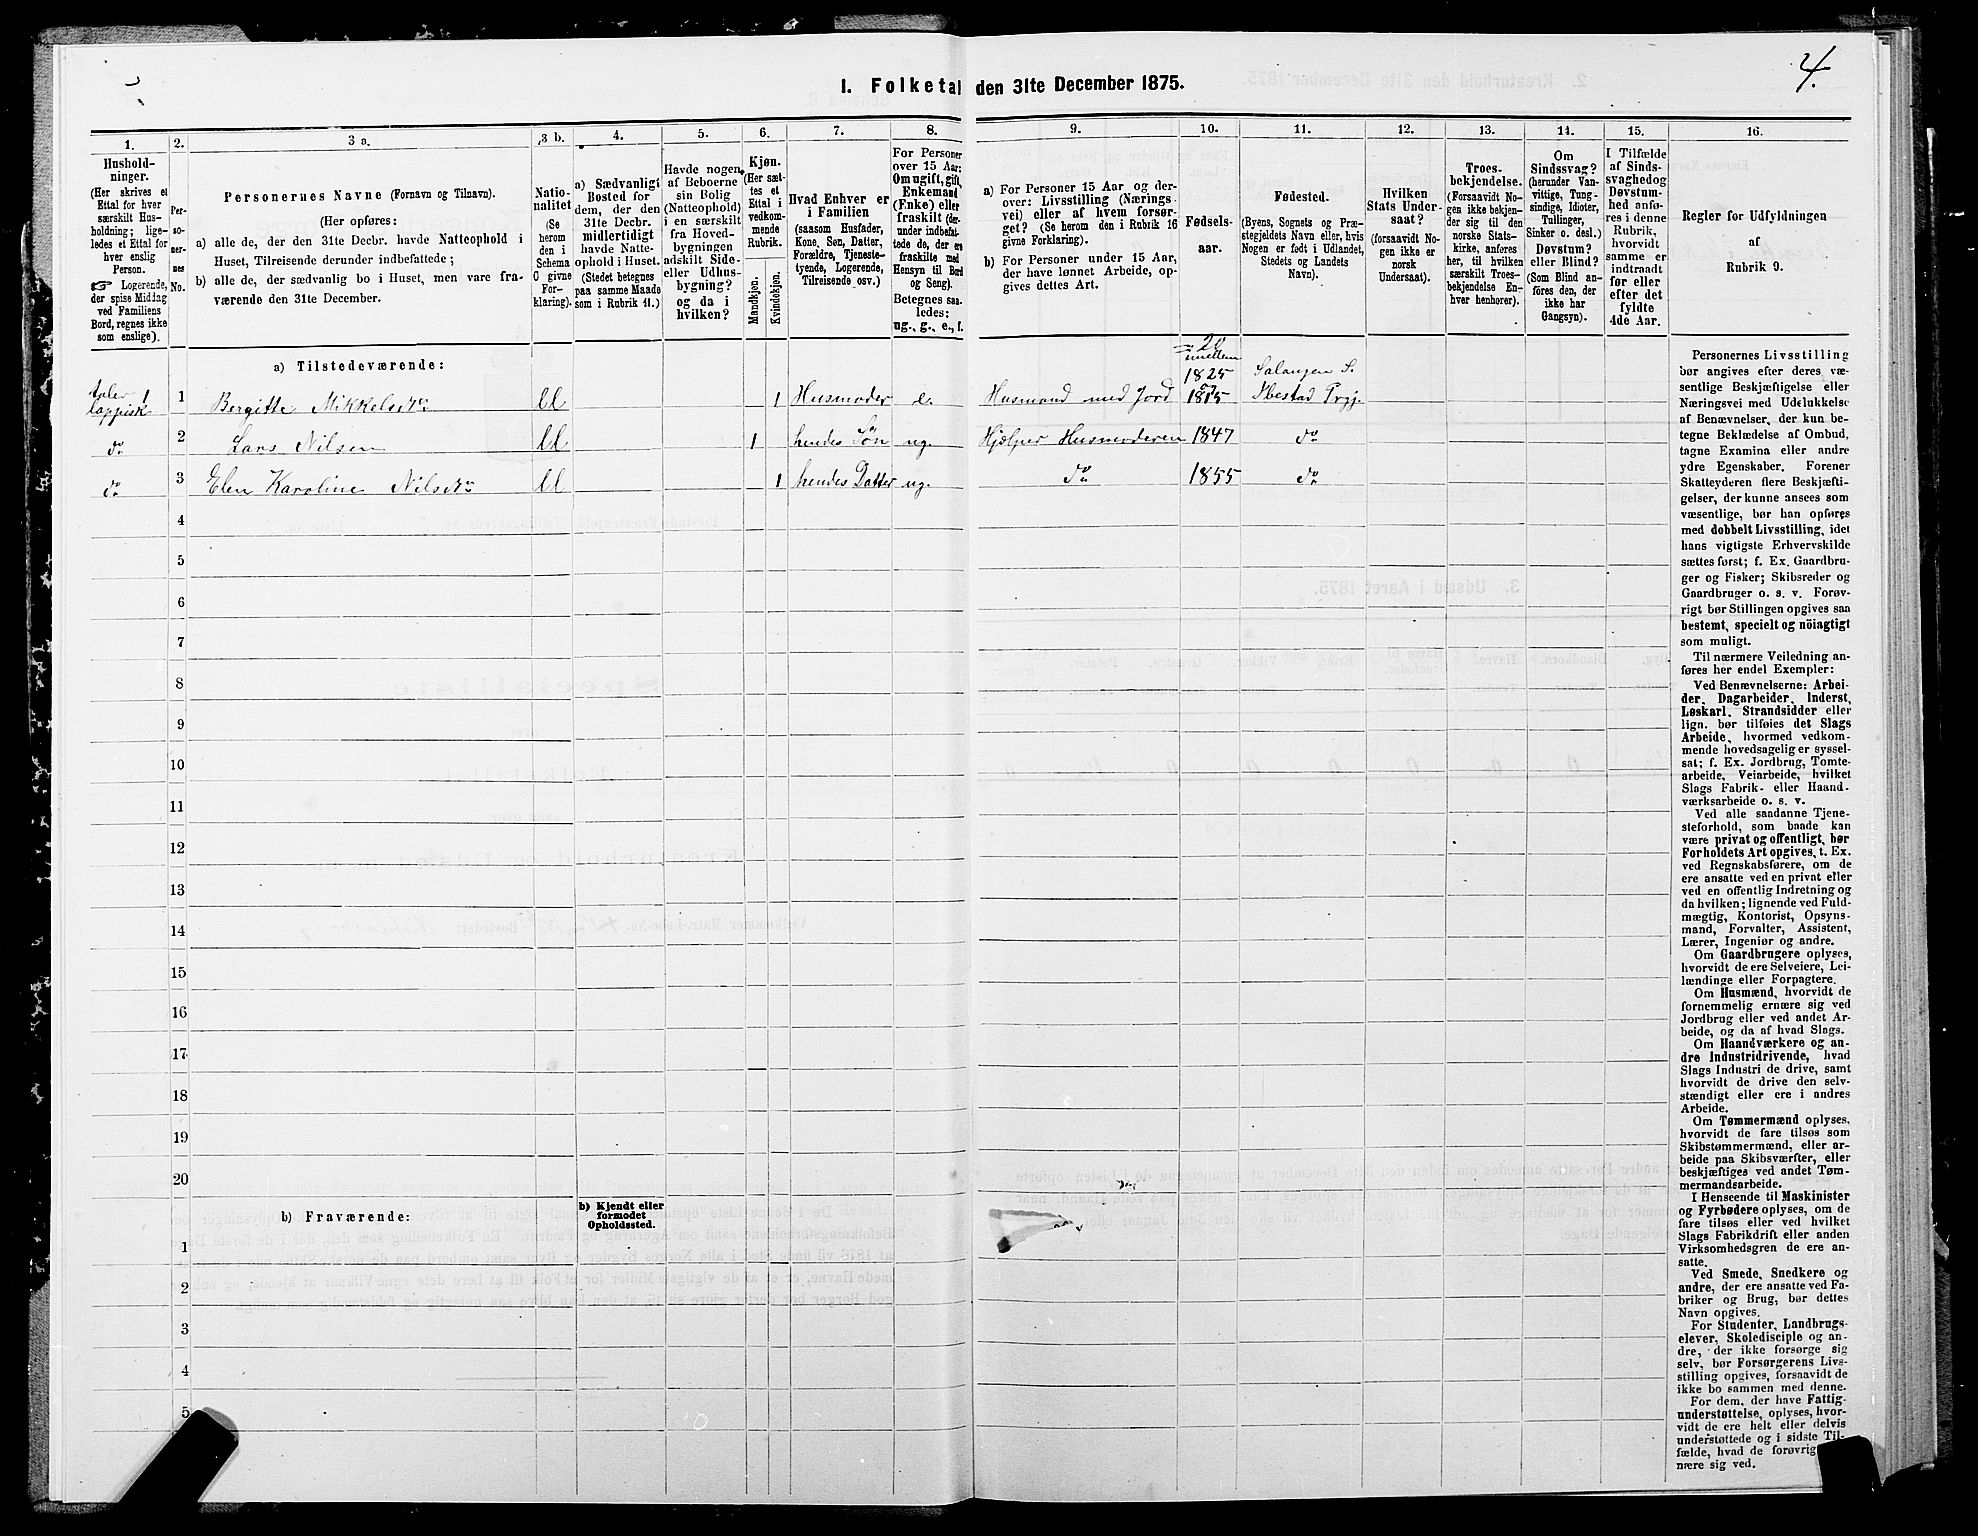 4.
I. Folketal den 31te December 1875.
1.
Hushold-
ninger.
(Her skrives et
Ettal for hver
særskilt Hus-
holdning; lige-
ledes et Ettal for
hver enslig
Person.
☞ Logerende,
der spise Middag
ved Familiens
Bord, regnes ikke
som enslige).
2.
Per-
so-
ner-
nes
No.
3 a.
Personernes Navne (Fornavn og Tilnavn).
(Her opføres:
a) alle de, der den 31te Decbr. havde Natteophold i
Huset, Tilreisende derunder indbefattede;
b) alle de, der sædvanlig bo i Huset, men vare fra-
værende den 31te December.
3 b.
Natio-
nalitet
(Se
herom
den i
Schema
C givne
For-
klaring).
4.
a) Sædvanligt
Bosted for
dem, der den
31te Decbr.
midlertidigt
havde Natte-
ophold i Huset.
(Stedet betegnes
paa samme Maade
som i Rubrik 11.)
5.
Havde nogen
af Beboerne
sin Bolig
(Natteophold)
i en særskilt
fra Hoved-
bygningen
adskilt Side-
eller Udhus-
bygning?
og da i
hvilken?
6.
Kjøn.
(Her sæt-
tes et
Ettal i
vedkom-
mende
Rubrik.
Mandkjøn.
Kvindekjøn.
7.
Hvad Enhver er
i Familien
(saasom Husfader,
Kone, Søn, Datter,
Forældre, Tjeneste-
tyende, Logerende,
Tilreisende osv.)
8.
For Personer
over 15 Aar:
Om ugift, gift,
Enkemand
(Enke) eller
fraskilt (der-
under indbefat-
tede de, der ere
fraskilte med
Hensyn til Bord
og Seng).
Betegnes saa-
ledes:
ug., g., e., f.
9.
a) For Personer 15 Aar og der-
over: Livsstilling (Nærings-
vei) eller af hvem forsør-
get? (Se herom den i Rubrik 16
givne Forklaring).
b) For Personer under 15 Aar,
der have lønnet Arbeide, op-
gives dettes Art.
10.
Fødsels-
aar.
11.
Fødested.
(Byens, Sognets og Præ-
stegjeldets Navn eller, hvis
Nogen er født i Udlandet,
Stedets og Landets
Navn).
12.
Hvilken
Stats Under-
saat?
(forsaavidt No-
gen ikke er
norsk
Undersaat).
13.
Troes-
bekjendelse.
(Forsaavidt No-
gen ikke bekjen-
der sig til den
norske Stats-
kirke, anføres
her, til hvilken
særskilt Troes-
bekjendelse En-
hver henhører).
14.
Om
Sindssvag?
(herunder Van-
vittige, Tung-
sindige, Idioter,
Tullinger,
Sinker o. desl.)
Døvstum?
eller Blind?
(Som Blind an-
føres den, der
ikke har
Gangsyn).
15.
I Tilfælde
af Sinds-
svaghed og
Døvstum-
hed anfø-
res i denne
Rubrik,
hvorvidt
samme er
indtraadt
før eller
efter det
fyldte
4de Aar.
16.
Regler for Udfyldningen
af
Rubrik 9.
a) Tilstedeværende:
taler 1
lappisk
1 Bergitte Mikkelsdtr ll 1 Husmoder e. Husmand med Jord 1825 1815 Salangen S. Ibestad Prgj.
do 2 Lars Nilsen ll 1 hendes Søn ug. Hjælper Husmoderen 1847 do
do 3 Elen Karoline Nilsdtr ll 1 hendes Datter ug. do 1855 do
4
5
6
7
8
9
10
11
12
13
14
15
16
17
18
19
20
b) Fraværende:
b) Kjendt eller
formodet
Opholdssted.
1
2
3
4
5
Personernes Livsstilling
bør angives efter deres væ-
sentlige Beskjæftigelse eller
Næringsvei med Udelukkelse
af Benævnelser, der kun be-
tegne Beklædelse af Ombud,
tagne Examina eller andre
ydre Egenskaber. Forener
Skatteyderen flere Beskjæfti-
gelser, der kunne ansees som
væsentlige, bør han opføres
med dobbelt Livsstilling, idet
hans vigtigste Erhvervskilde
sættes først; f. Ex. Gaardbru-
ger og Fisker; Skibsreder og
Gaardbruger o. s. v. Forøv-
rigt bør Stillingen opgives saa
bestemt, specielt og nöiagtigt
som muligt.
Til nærmere Veiledning an-
føres her endel Exempler:
Ved Benævnelserne: Arbei-
der, Dagarbeider, Inderst,
Løskarl, Strandsidder eller
lign. bør tilføies det Slags
Arbeide, hvormed vedkom-
mende hovedsagelig er syssel-
sat; f. Ex. Jordbrug, Tomte-
arbeide, Veiarbeide, hvilket
Slags Fabrik- eller Haand-
værksarbeide o. s. v.
Ved alle saadanne Tjene-
steforhold, som baade kan
være privat og offentligt, bør
Forholdets Art opgives, t. Ex.
ved Regnskabsførere, om de
ere ansatte ved en privat eller
ved en offentlig Indretning og
da hvilken; lignende ved Fuld-
mægtig, Kontorist, Opsyns-
mand, Forvalter, Assistent,
Lærer, Ingeniør og andre.
Om Gaardbrugere oplyses,
hvorvidt de ere Selveiere, Lei-
lændinge eller Forpagtere.
Om Husmænd, hvorvidt de
fornemmelig ernære sig ved
Jordbrug eller ved andet Ar-
beide, og da af hvad Slags.
Om Haandværkere og an-
dre Industridrivende, hvad
Slags Industri de drive, samt
hvorvidt de drive den selv-
stændigt eller ere i andres
Arbeide.
Om Tømmermænd oplyses,
hvorvidt de fare tilsøs som
Skibstømmermænd, eller ar-
beide paa Skibsværfter, eller
beskjæftiges ved andet Tøm-
mermandsarbeide.
I Henseende til Maskinister
og Fyrbødere oplyses, om de
fare tilsøs eller ved hvilket
Slags Fabrikdrift eller anden
Virksomhedsgren de ere an-
satte.
Ved Smede, Snedkere og
andre, der ere ansatte ved Fa-
briker og Brug, bør dettes
Navn opgives.
For Studenter, Landbrugs-
elever, Skoledisciple og an-
dre, der ikke forsørge sig
selv, bør Forsørgerens Livs-
stilling opgives, forsaavidt de
ikke bo sammen med denne.
For dem, der have Fattig-
understøttelse, oplyses, hvor-
vidt de ere helt eller delvis
understøttede og i sidste Til-
fælde, hvad de forøvrig
nære sig ved.